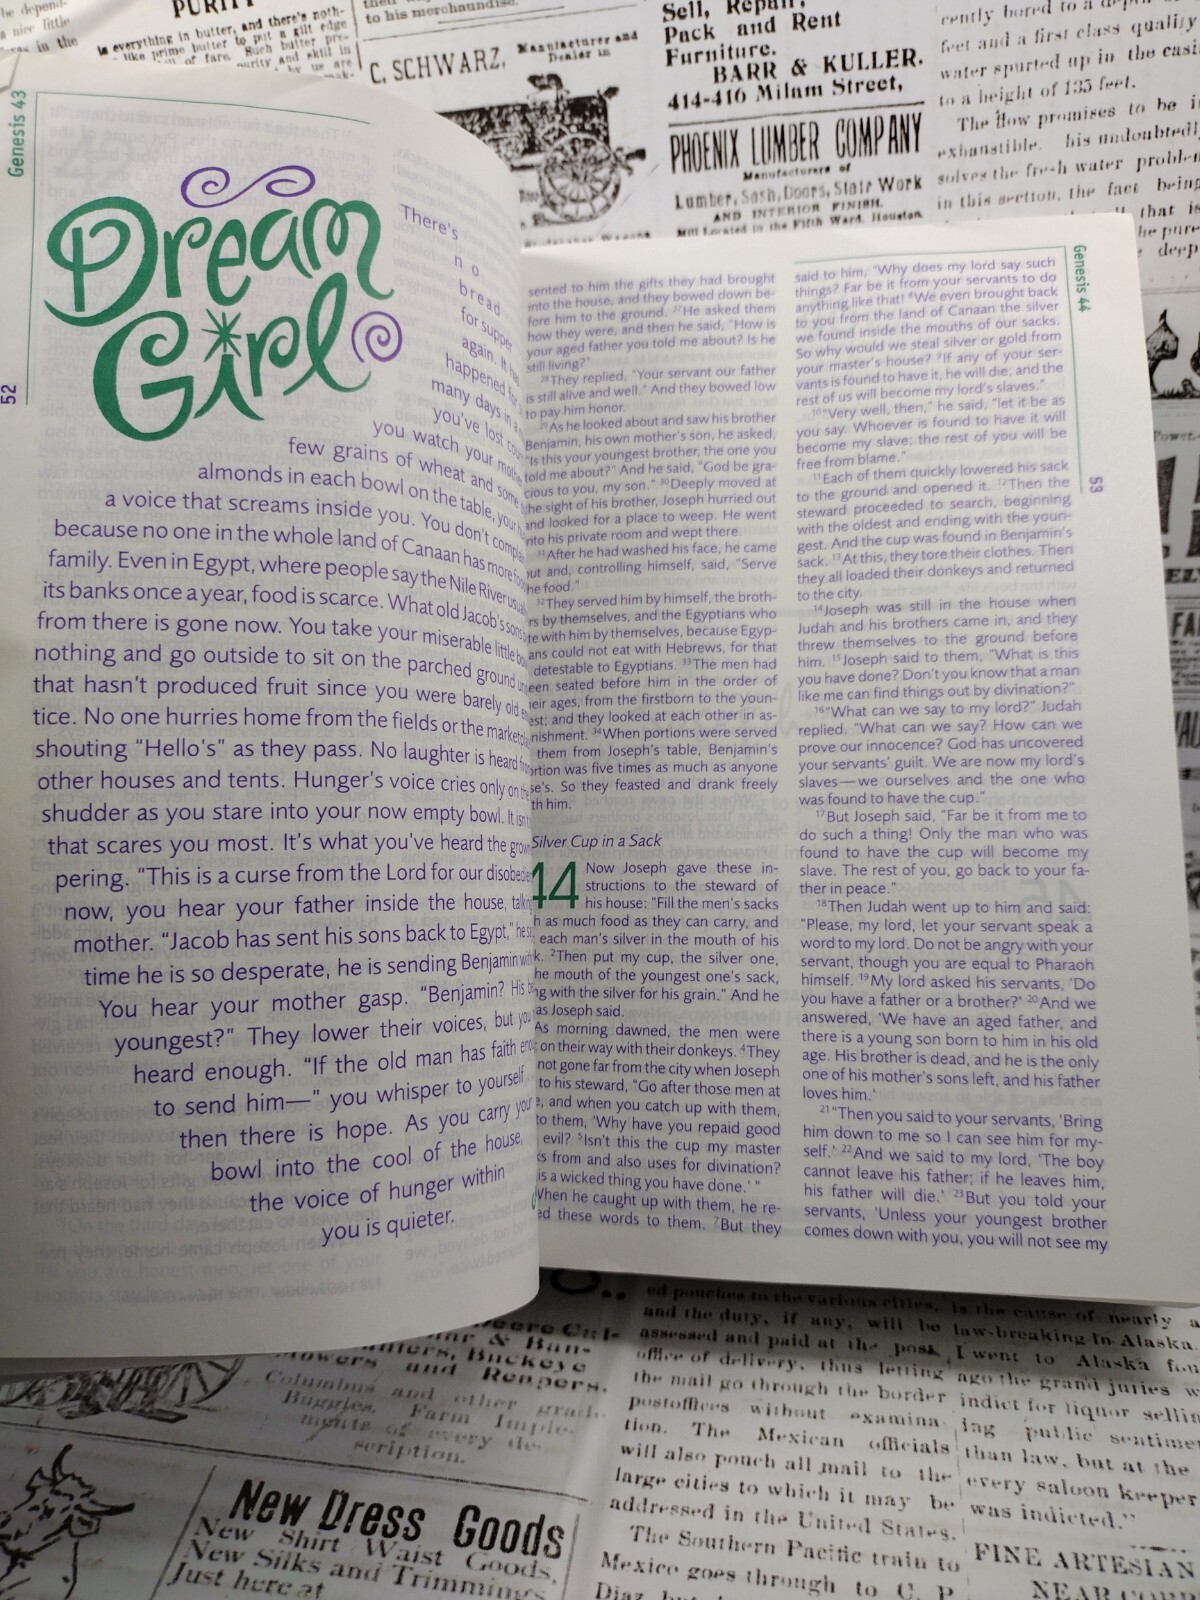 Genesis 43
52
Dream
Girl
There's
no
bread
for supper
again. It has
happened for
many days in a
you've lost
you watch your
few grains of wheat and some
almonds in each bowl on the table, your
a voice that screams inside you. You don't
because no one in the whole land of Canaan has more food
family. Even in Egypt, where people say the Nile River
its banks once a year, food is scarce. What old Jacob's sons
from there is gone now. You take your miserable little
nothing and go outside to sit on the parched ground
that hasn't produced fruit since you were barely old
tice. No one hurries home from the fields or the
shouting "Hello's" as they pass. No laughter is heard
other houses and tents. Hunger's voice cries only on the
shudder as you stare into your now empty bowl. It isn't
that scares you most. It's what you've heard the
pering. "This is a curse from the Lord for our
now, you hear your father inside the house,
mother. "Jacob has sent his sons back to Egypt," he
time he is so desperate, he is sending Benjamin
You hear your mother gasp. "Benjamin? His
youngest?" They lower their voices, but you
heard enough. "If the old man has faith
to send him—" you whisper to yourself
then there is hope. As you carry your
bowl into the cool of the house,
the voice of hunger within
you is quieter.
sented to him the gifts they had brought
into the house, and they bowed down be-
fore him to the ground. 27He asked them
how they were, and then he said, "How is
your aged father you told me about? Is he
still living?"
28They replied, "Your servant our father
is still alive and well." And they bowed low
to pay him honor.
29As he looked about and saw his brother
Benjamin, his own mother's son, he asked,
"Is this your youngest brother, the one you
told me about?" And he said, "God be gra-
cious to you, my son." 30Deeply moved at
the sight of his brother, Joseph hurried out
and looked for a place to weep. He went
into his private room and wept there.
31After he had washed his face, he came
out and, controlling himself, said, "Serve
he food."
32They served him by himself, the broth-
rs by themselves, and the Egyptians who
te with him by themselves, because Egyp-
ans could not eat with Hebrews, for that
detestable to Egyptians. 33The men had
een seated before him in the order of
eir ages, from the firstborn to the youn-
est; and they looked at each other in as-
nishment. 34When portions were served
them from Joseph's table, Benjamin's
ortion was five times as much as anyone
se's. So they feasted and drank freely
th him.
Silver Cup in a Sack
44 Now Joseph gave these in-
structions to the steward of
his house: "Fill the men's sacks
h as much food as they can carry, and
each man's silver in the mouth of his
k. 2Then put my cup, the silver one,
he mouth of the youngest one's sack,
ng with the silver for his grain." And he
as Joseph said.
As morning dawned, the men were
on their way with their donkeys. 4They
not gone far from the city when Joseph
to his steward, "Go after those men at
e, and when you catch up with them,
to them, 'Why have you repaid good
evil? 5Isn't this the cup my master
ks from and also uses for divination?
is a wicked thing you have done.' "
When he caught up with them, he re-
ed these words to them. 7But they
Genesis 44
53
said to him, "Why does my lord say such
things? Far be it from your servants to do
anything like that! 8We even brought back
to you from the land of Canaan the silver
we found inside the mouths of our sacks.
So why would we steal silver or gold from
your master's house? 9If any of your ser-
vants is found to have it, he will die; and the
rest of us will become my lord's slaves."
10"Very well, then," he said, "let it be as
you say. Whoever is found to have it will
become my slave; the rest of you will be
free from blame."
11Each of them quickly lowered his sack
to the ground and opened it. 12Then the
steward proceeded to search, beginning
with the oldest and ending with the youn-
gest. And the cup was found in Benjamin's
sack. 13At this, they tore their clothes. Then
they all loaded their donkeys and returned
to the city.
14Joseph was still in the house when
Judah and his brothers came in, and they
threw themselves to the ground before
him. 15Joseph said to them, "What is this
you have done? Don't you know that a man
like me can find things out by divination?"
16"What can we say to my lord?" Judah
replied. "What can we say? How can we
prove our innocence? God has uncovered
your servants' guilt. We are now my lord's
slaves—we ourselves and the one who
was found to have the cup."
17But Joseph said, "Far be it from me to
do such a thing! Only the man who was
found to have the cup will become my
slave. The rest of you, go back to your fa-
ther in peace."
18Then Judah went up to him and said:
"Please, my lord, let your servant speak a
word to my lord. Do not be angry with your
servant, though you are equal to Pharaoh
himself. 19My lord asked his servants, 'Do
you have a father or a brother?' 20And we
answered, 'We have an aged father, and
there is a young son born to him in his old
age. His brother is dead, and he is the only
one of his mother's sons left, and his father
loves him.'
21"Then you said to your servants, 'Bring
him down to me so I can see him for my-
self.' 22And we said to my lord, 'The boy
cannot leave his father; if he leaves him,
his father will die.' 23But you told your
servants, 'Unless your youngest brother
comes down with you, you will not see my
PURITY
is everything in butter, and there's noth-
like prime butter to put a gilt edge
to his merchandise.
C. SCHWARZ, Manufacturer and
Dealer in
Sell, Repair,
Pack and Rent
Furniture.
BARR & KULLER.
414-416 Milam Street,
PHOENIX LUMBER COMPANY
Manufacturers of
Lumber, Sash, Doors, Stair Work
AND INTERIOR FINISH.
Mill Located in the Fifth Ward, Houston
feet and a first class quality
water spurted up in the
to a height of 135 feet.
The flow promises to be
exhaustible. his undoubtedly
solves the fresh water
in this section, the fact being
that is
Columbus and other
Buggies. Farm Imple-
ments of every de-
scription.
New Dress Goods
New Shirt Waist Goods,
New Silks and Trimmings
Just here at
ed pouches to the various cities,
and the duty, if any, will be
assessed and paid at the post
office of delivery, thus letting
the mail go through the border
postoffices without examina
tion. The Mexican officials
will also pouch all mail to the
large cities to which it may be
addressed in the United States.
The Southern Pacific train to
Mexico goes through to C. P.
Diaz
is the cause of nearly
law-breaking in Alaska.
I went to Alaska
ago the grand juries
indict for liquor
ing public
than law, but at the
every saloon keeper
was indicted."
FINE ARTESIAN
NEAR